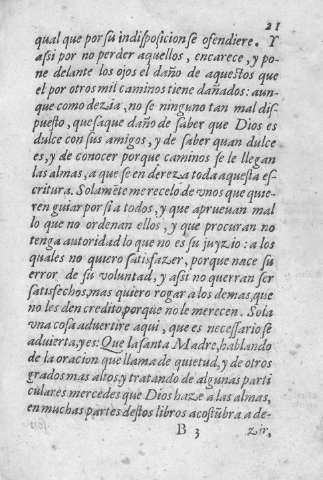 21
qual que por su indisposicion se ofendiere. Y
assi por no perder aquellos, encarece, y po-
ne delante los ojos el daño de aquestos que
el por otros mil caminos tiene dañados: aun-
que como dezia, no se ninguno tan mal dis-
puesto, que saque daño de saber que Dios es
dulce con sus amigos, y de saber quan dulce
es, y de conocer porque caminos se le llegan
las almas, a que se endereza toda aquesta es-
critura. Solamẽte me recelo de vnos que quie-
ren guiar por si a todos, y que aprueuan mal
lo que no ordenan ellos, y que procuran no
tenga autoridad lo que no es su juyzio: a los
quales no quiero satisfazer, porque nace su
error de su voluntad, y assi no querran ser
satisfechos, mas quiero rogar a los demas, que
no les den credito, porque no le merecen. Sola
vna cosa aduertire aqui, que es necessario se
aduierta, y es: Que la santa Madre, hablando
de la oracion que llama de quietud, y de otros
grados mas altos, y tratando de algunas parti
culares mercedes que Dios haze a las almas,
en muchas partes destos libros acostũbra a de-
B 3 zir,